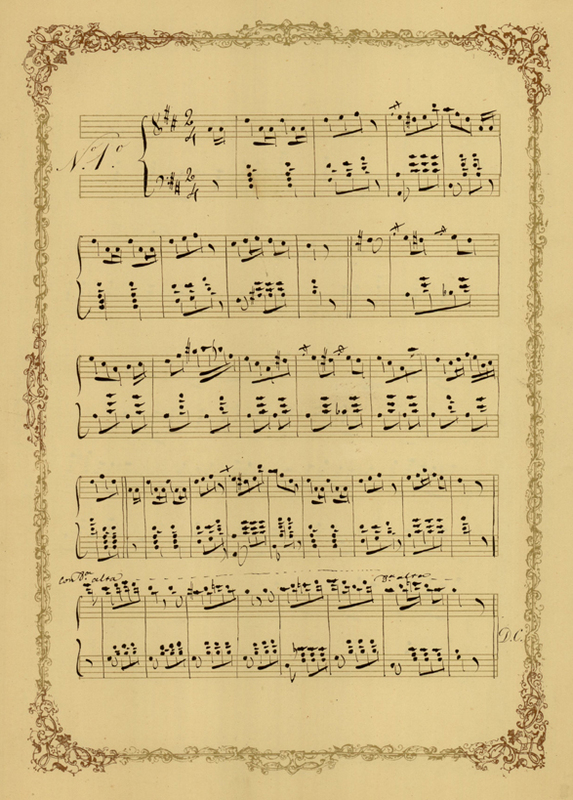 Nº 1º
2
4
2
4
con 8ª alta
8ª alta
D.C.